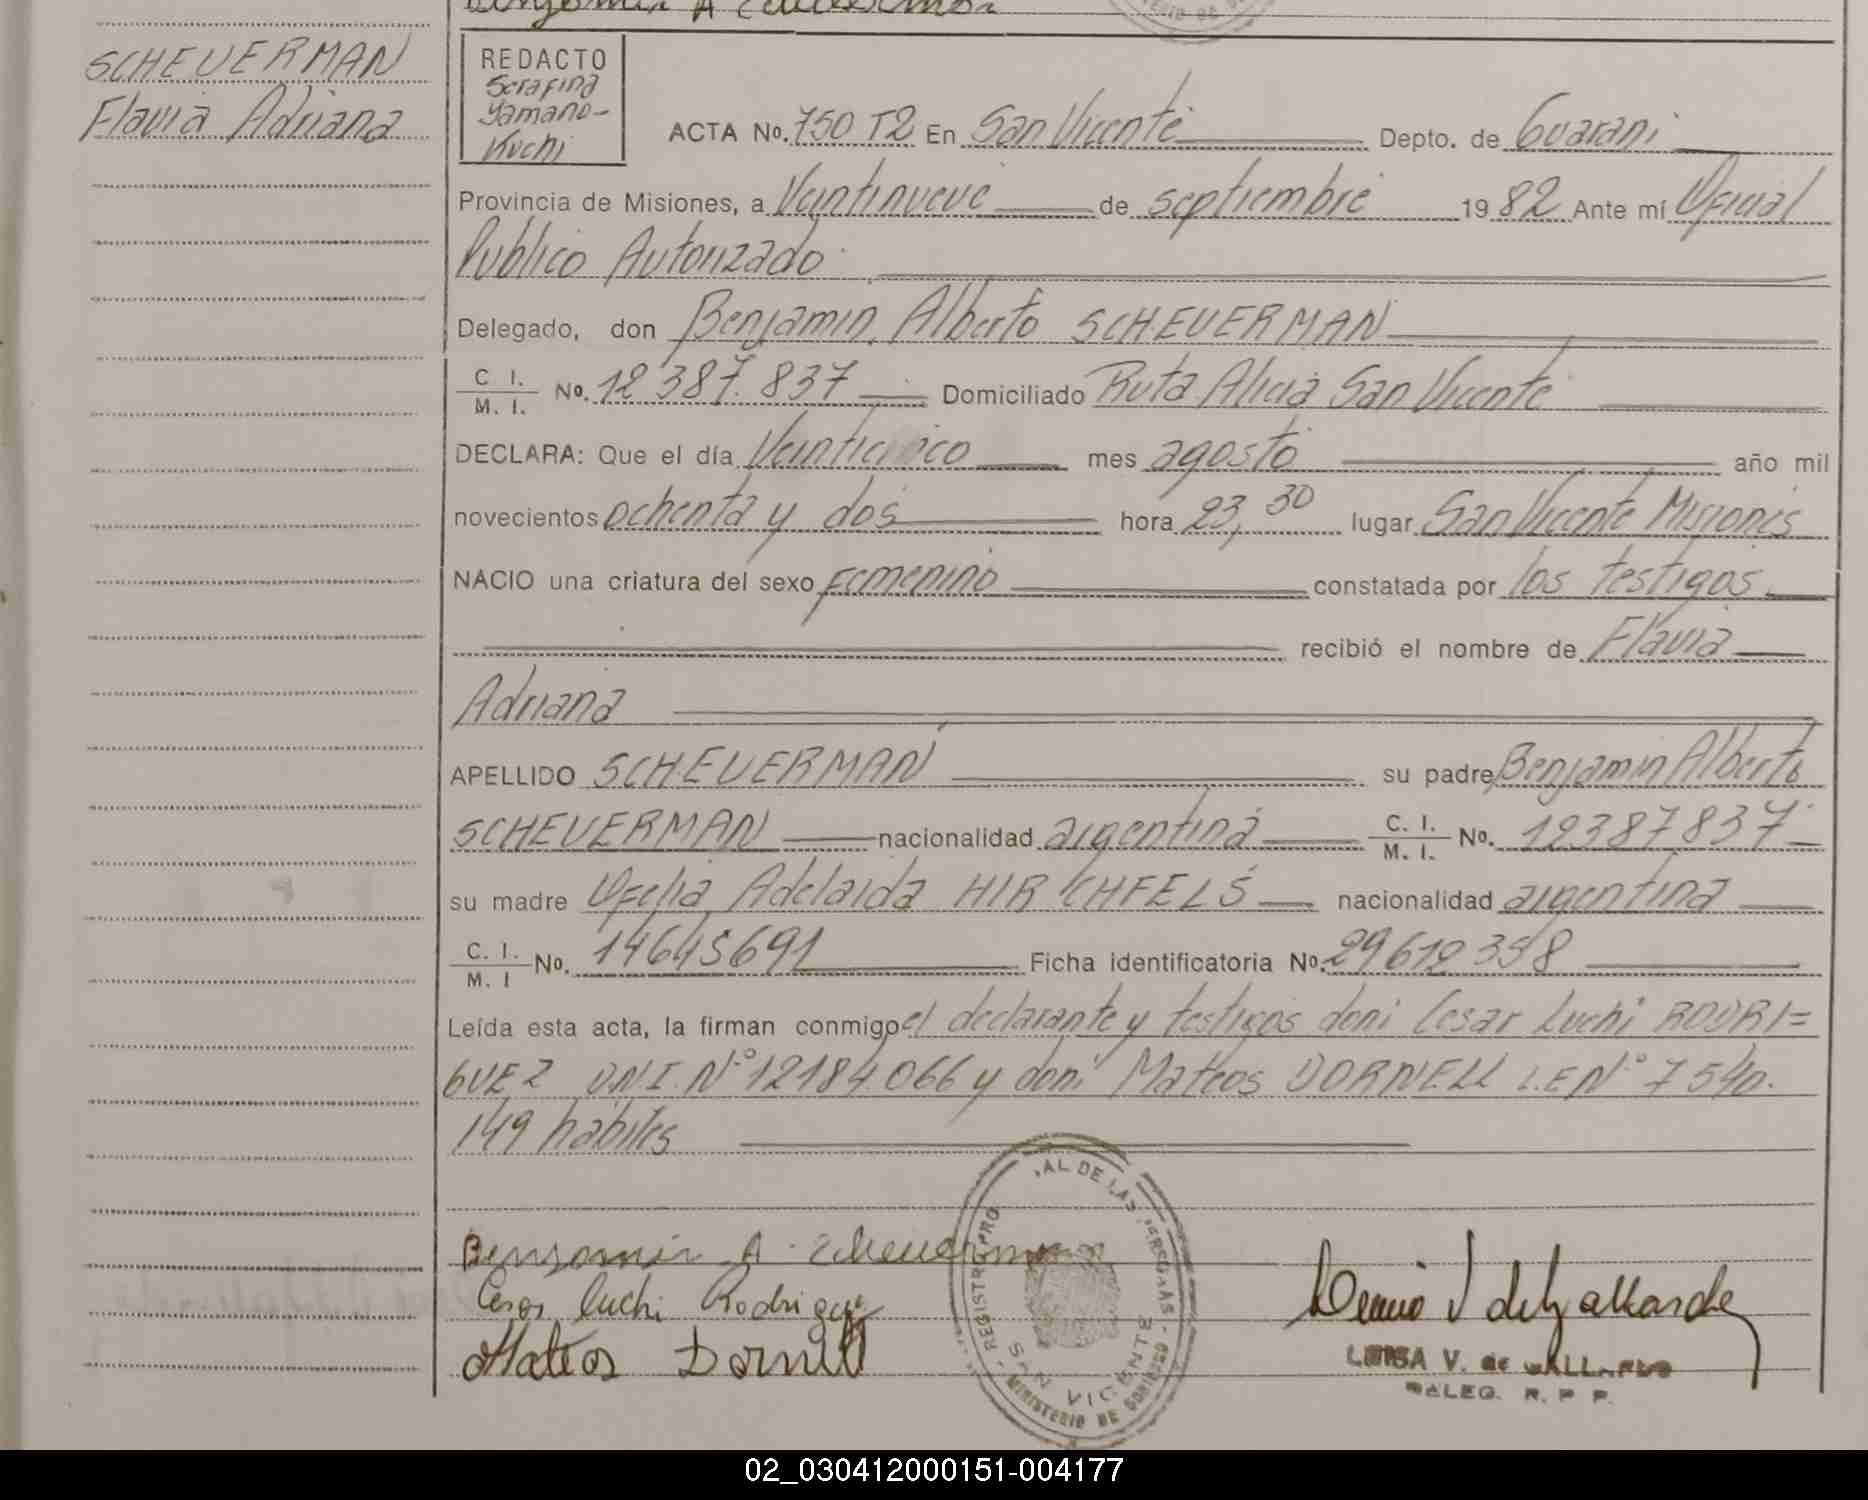 Benjamin A Scheuerman
SCHEUERMAN
Flavia Adriana
REDACTO
Serafina
Yamano-
Kuchi
ACTA No. 750 T2 En San Vicente Depto. de Guarani
Provincia de Misiones, a Veintinueve de septiembre 1982 Ante mí Oficial
Publico Autorizado
Delegado, don Benjamin Alberto SCHEUERMAN
C I. / M. I. No. 12 387. 837 Domiciliado Ruta Alicia San Vicente
DECLARA: Que el día Veinticinco mes agosto año mil
novecientos ochenta y dos hora 23,30 lugar San Vicente Misiones
NACIO una criatura del sexo femenino constatada por los testigos
recibió el nombre de Flavia
Adriana
APELLIDO SCHEUERMAN su padre Benjamin Alberto
SCHEUERMAN nacionalidad argentina C. I. / M. I. No. 12387837
su madre Ofelia Adelaida HIRCHFELS nacionalidad argentina
C. I. / M. I No. 14645691 Ficha identificatoria No. 29612358
Leída esta acta, la firman conmigo el declarante y testigos don: Cesar Luchi RODRI=
GUEZ D.N.I. N° 12184.066 y don: Mateos DORNELL L.E N° 7540.
149 hábiles
Benjamin A. Scheuerman
Cesar Luchi Rodriguez
Mateos Dornell
REGISTRO PRO AL DE LAS PERSONAS
SAN VICENTE
MINISTERIO DE GOBIERNO
LUISA V. de GALLARDO
DELEG. R. P. P.
02_030412000151-004177